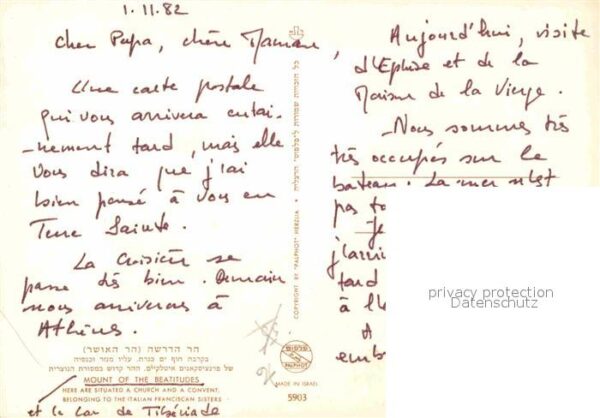 1.11.82
Cher Papa, chère Maman,
Une carte postale
qui vous arrivera certai-
nement tard, mais elle
vous dira que j'ai
bien pensé à vous en
Terre Sainte.
La croisière se
passe très bien. Demain
nous arriverons à
Athènes.
הר הדרשה (הר האושר)
בקרבת חוף ים כנרת. עליו מנזר וכנסיה
של פרנציסקאנים איטלקיים. ההר קדוש במסורת הנוצרית
MOUNT OF THE BEATITUDES
HERE ARE SITUATED A CHURCH AND A CONVENT.
BELONGING TO THE ITALIAN FRANCISCAN SISTERS
et le lac de Tibériade
כל הזכויות שמורות ל"פלפוט" הרצליה
COPYRIGHT BY "PALPHOT" HERZLIA
פלפוט
PALPHOT
MADE IN ISRAEL
5903
Aujourd'hui, visite
d'Ephèse et de la
Maison de la Vierge.
Nous sommes très
très occupés sur le
bateau. La mer n'est
pas
Je
j'arri
tard
à l'
A
emb
privacy protection
Datenschutz